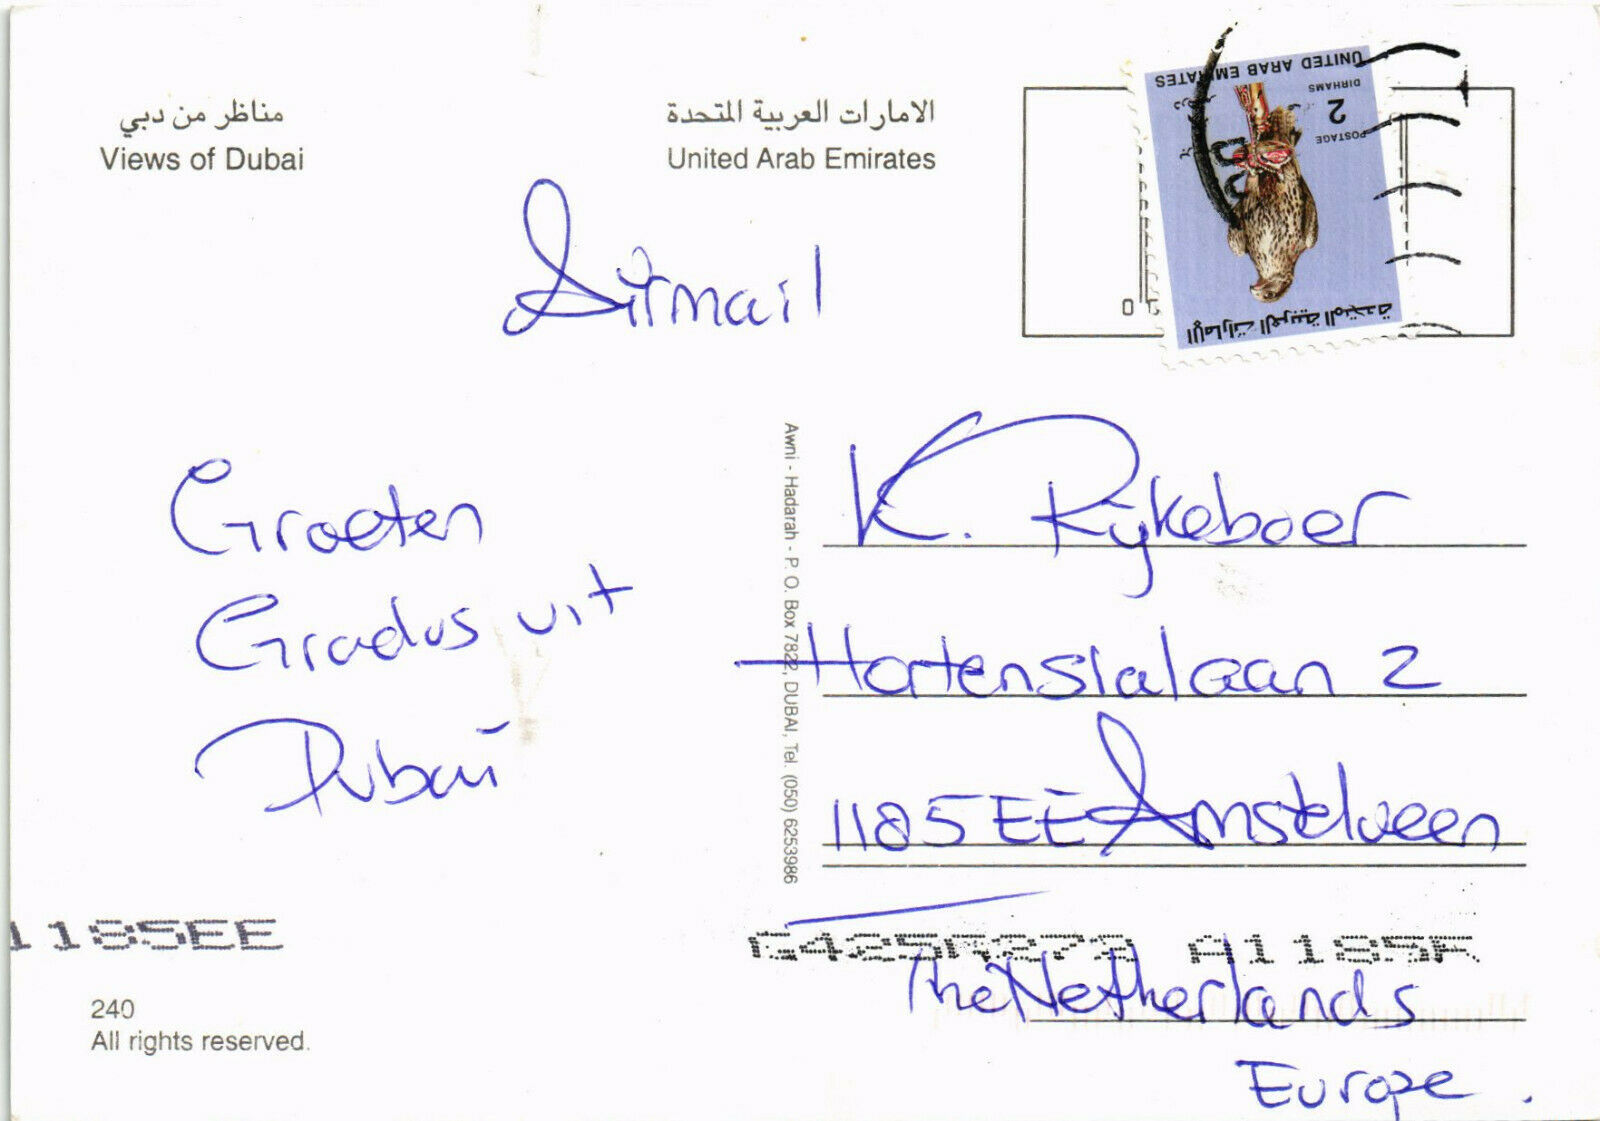 مناظر من دبي
Views of Dubai
الامارات العربية المتحدة
United Arab Emirates
UNITED ARAB EMIRATES
DIRHAMS
2
POSTAGE
الإمارات العربية المتحدة
Airmail
Groeten
Gradus uit
Dubai
Awni - Hadarah - P. O. Box 7822, DUBAI, Tel. (050) 6253986
K. Rijkeboer
Hortensialaan 2
1185EE Amstelveen
The Netherlands
Europe.
1185EE
G425R273 A1185A
240
All rights reserved.